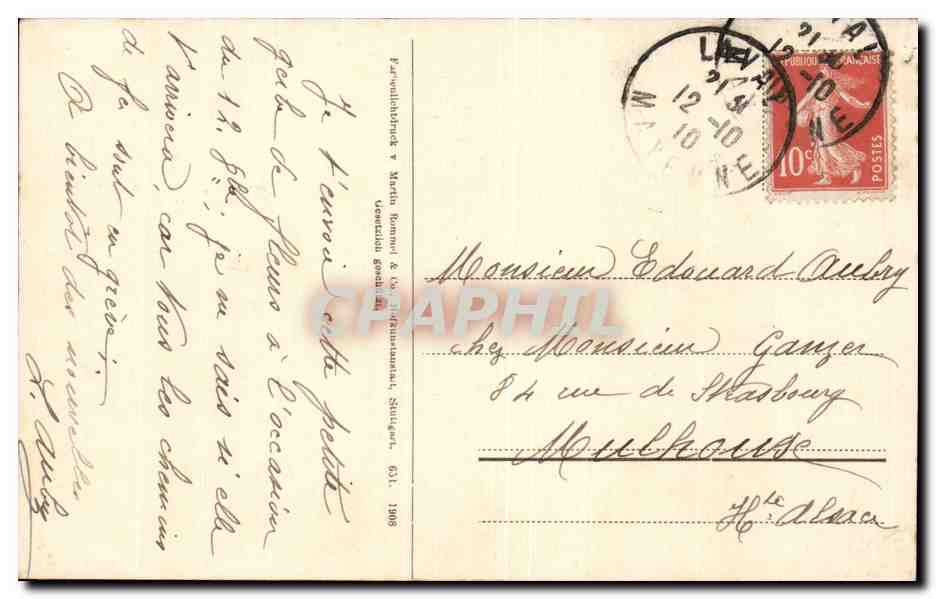 Je t'envoie cette petite
gerbe de fleurs à l'occasion
du 12. 8bre; je ne sais si elle
t'arrivera, car tous les chemins
de fer sont en grève;
A bientôt des nouvelles
L. Aubry
Farbenlichtdruck v Martin Rommel & Co., Hofkunstanstalt, Stuttgart. 651. 1908
Gesetzlich geschützt
LAVAL
21 30
12 -10
10
MAYENNE
LAVAL
21 30
12 -10
NE
REPUBLIQUE FRANÇAISE
10c
POSTES
Monsieur Edouard Aubry
chez Monsieur Ganzer
84 rue de Strasbourg
Mulhouse
Hte Alsace
CPAPHIL